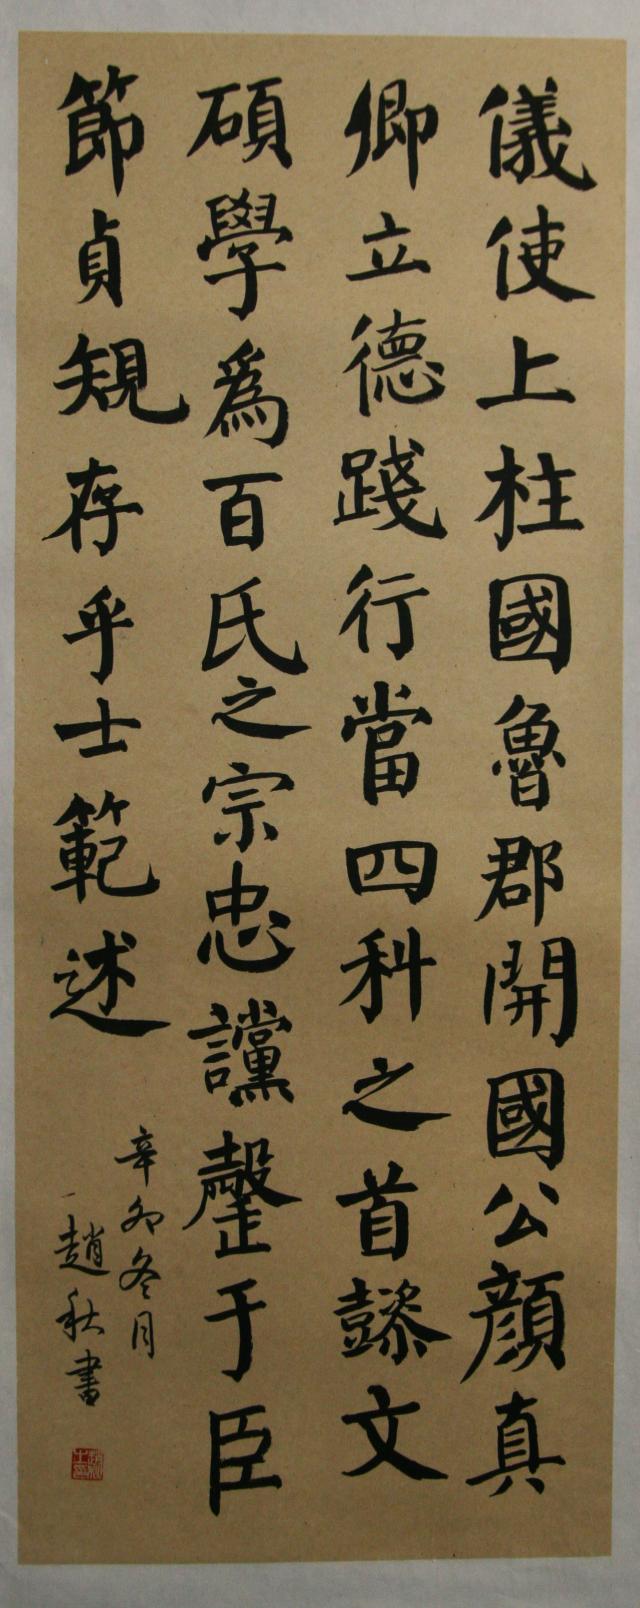 儀使上柱國魯郡開國公顏真
卿立德踐行當四科之首懿文
碩學為百氏之宗忠讜罄于臣
節貞規存乎士範述
辛卯冬月
趙秋書